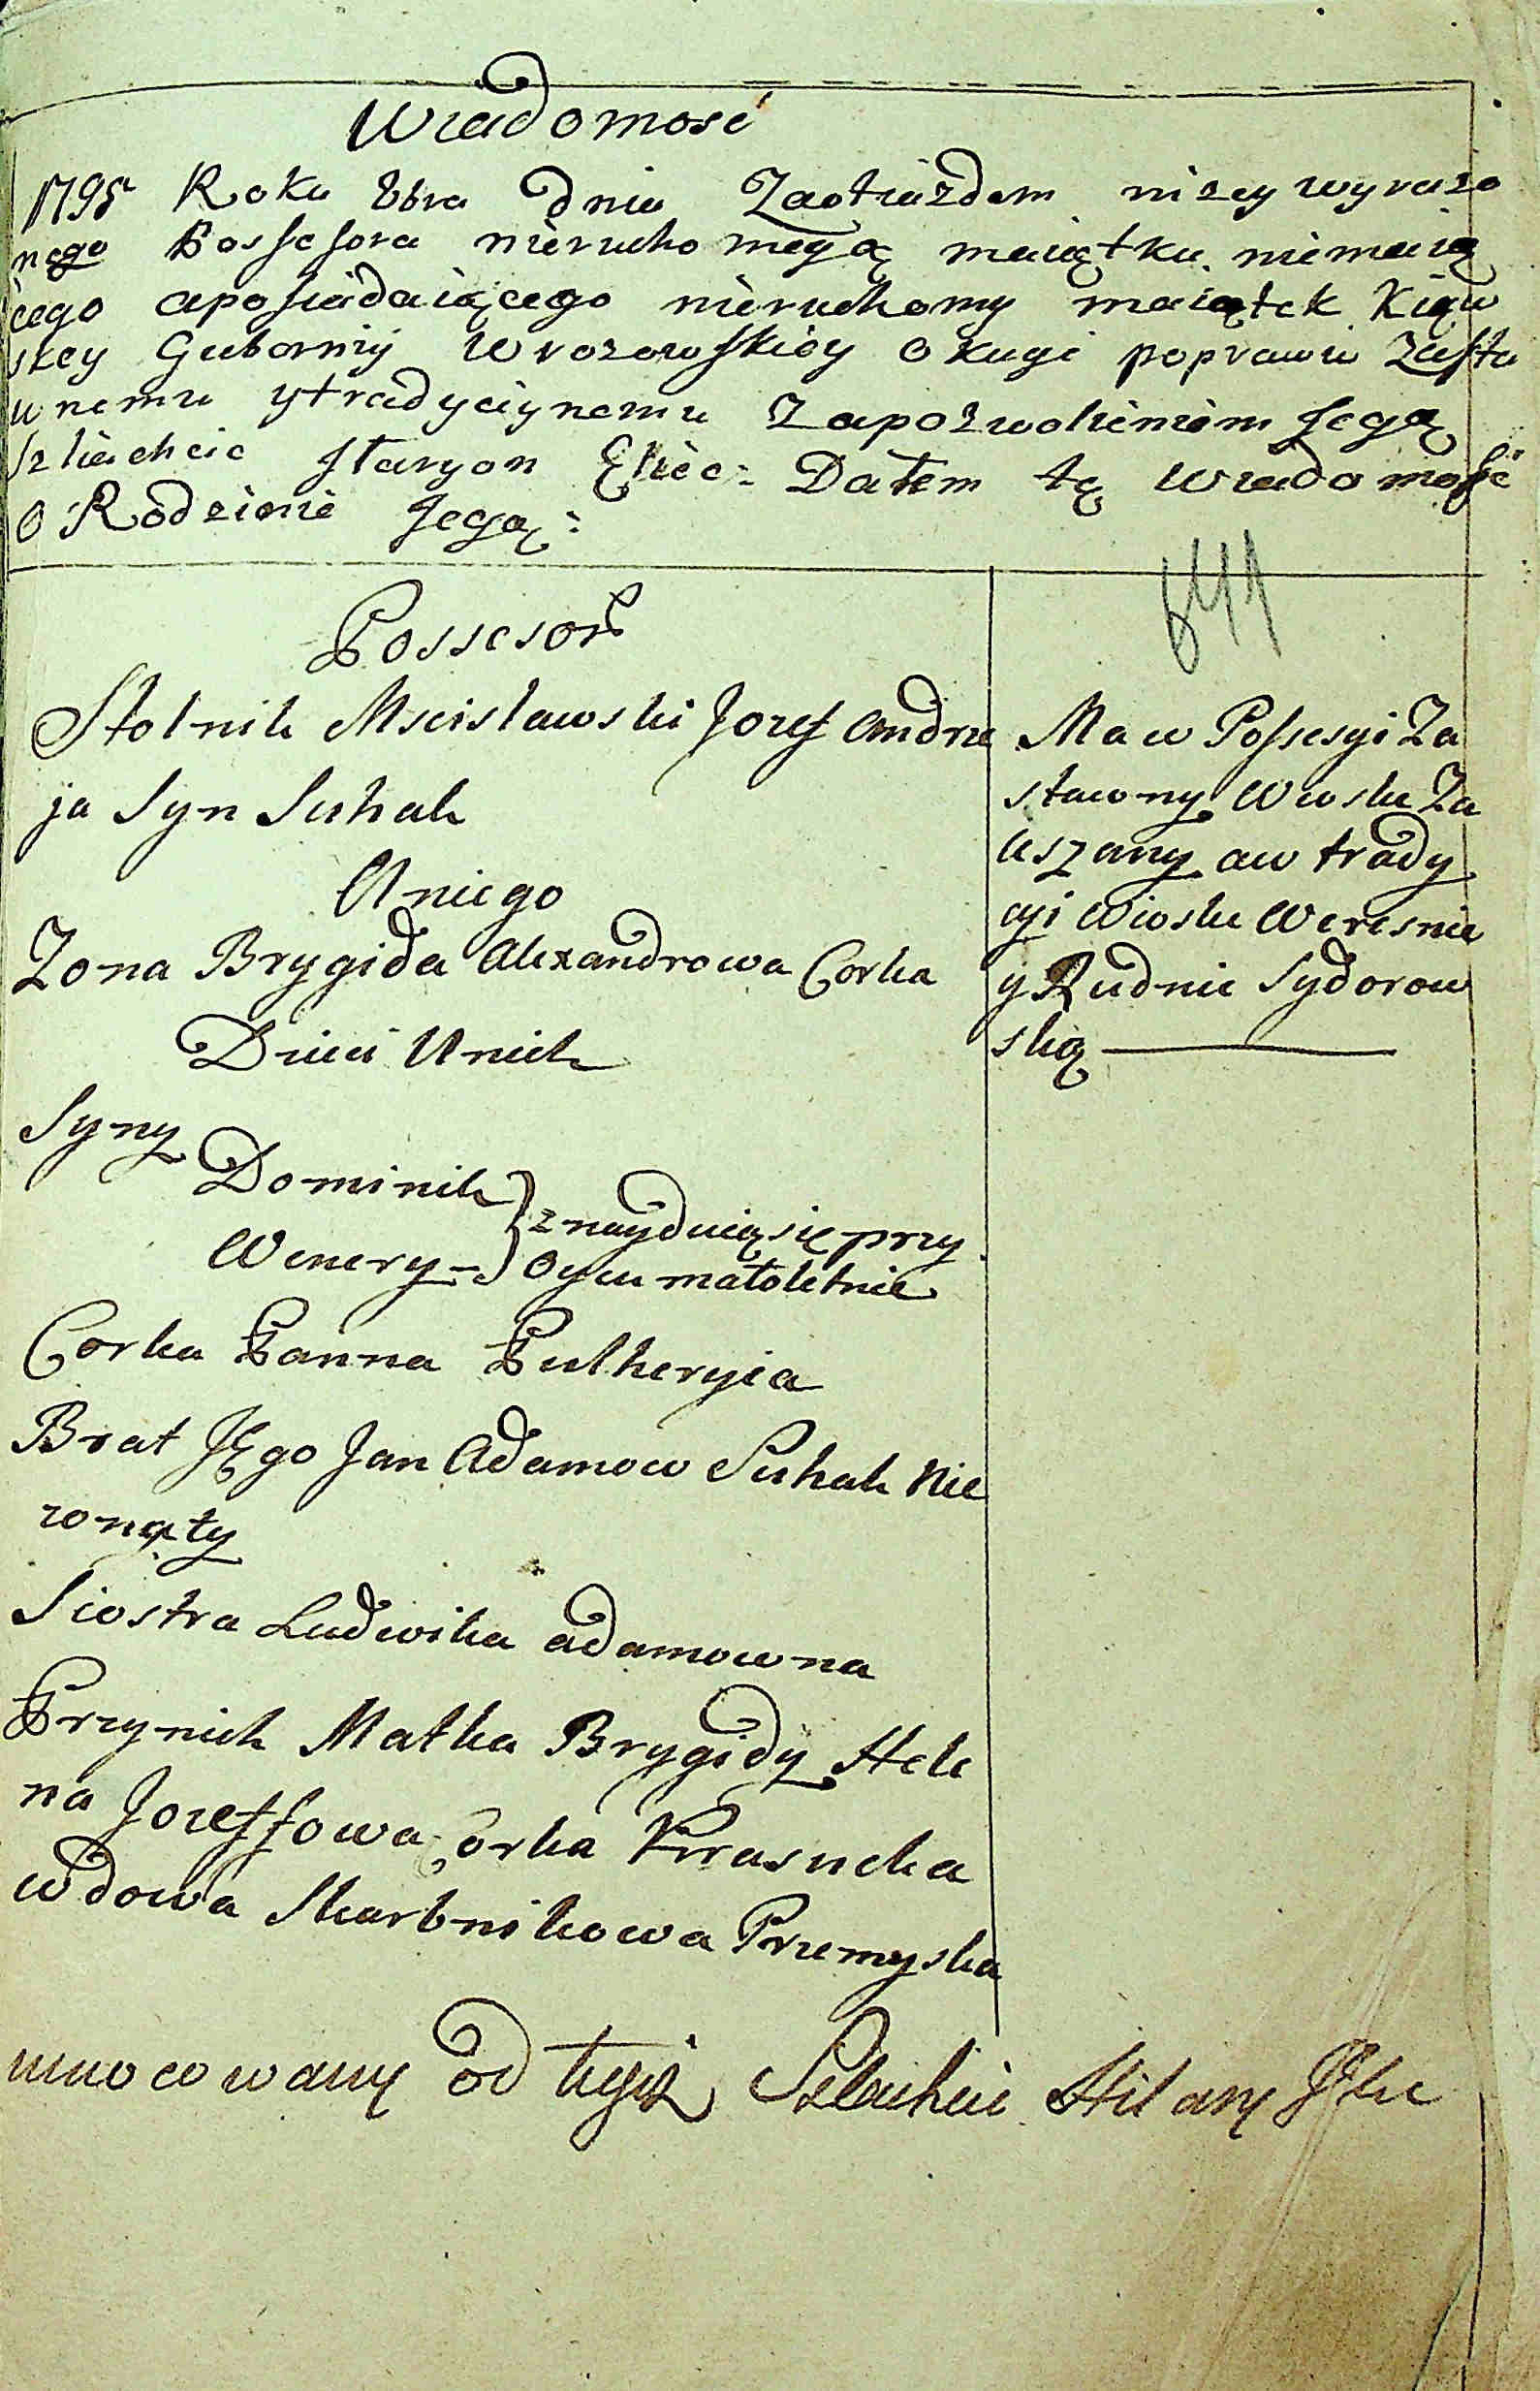 Wiadomosć
1795 Roku 8bra dnia Zaotiazdem nizey wyrazo
nego Possesora nieruchomegą maiątku niemaią
cego aposiadaiącego nieruchomy maiątek Kiąw
skey Gubornij W rozowskiey okugi poprawu Zasta
wnemu ytradyciynemu Zapozwolieniem Jegą
szliachcic Jlaryon Datem tę wiadomość
O Rodzienie Jegą:
641
Possesor
Stolnik Mscislawski Jozef Andrze
ja Syn Suhak
U niego
Zona Brygida Alexandrowa Corka
Dzieci U nich
Syny
Dominik
Wenery
znayduią się przy
Oycu małoletnie
Corka Panna Pulheryia
Brat Jego Jan Adamow Suhak Nie
zonąty
Siostra Ludwika adamowna
Przy nich Matka Brygidy Hele
na Jozeffowa Corka Krasucka
wdowa Skarbnikowa Przemyska
Ma w Possesyi Za
stawny Wioske Za
leszany aw trady
cyi Wioske Weresnie
y Rudnie Sydorow
ską
umocowany od tegoż Szlachcic Hilary